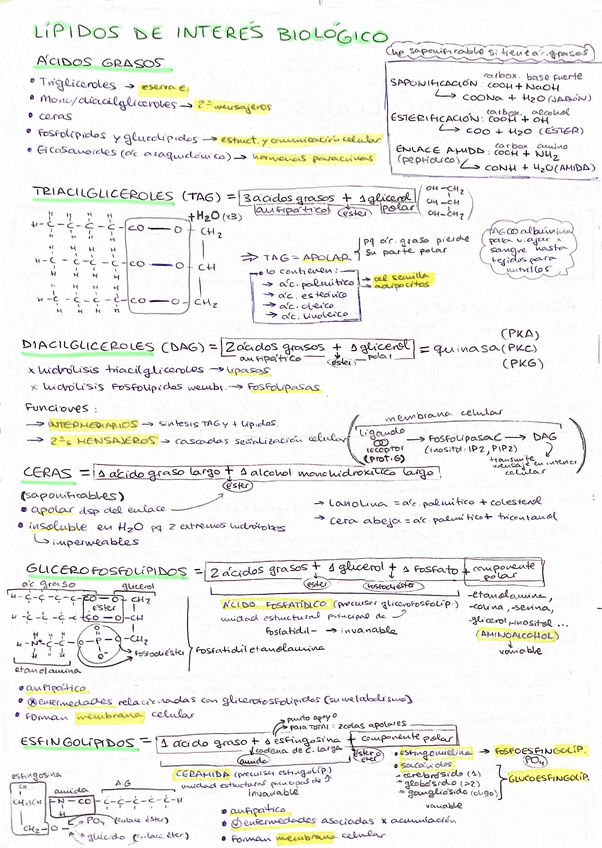 LÍPIDOS DE INTERÉS BIOLÓGICO
lip saponificable si tiene ác. grasos
ÁCIDOS GRASOS
• Trigliceroles → reserva E.
• Mono/diacilgliceroles → 2ºs mensajeros
• ceras
• Fosfolípidos y glucolípidos → estruct. y comunicación celular
• Eicosanoides (ác araquidónico) → hormonas paracrinas
carbox. base fuerte
SAPONIFICACIÓN: COOH + NaOH
↳ COONa + H2O (JABÓN)
carbox. alcohol
ESTERIFICACIÓN: COOH + OH
↳ COO + H2O (ÉSTER)
carbox amino
ENLACE AMIDA: COOH + NH2
(peptídico) ↳ CONH + H2O (AMIDA)
TRIACILGLICEROLES (TAG) = 3 ácidos grasos + 1 glicerol
anfipático éster polar
OH-CH2
OH-CH
OH-CH2
+H2O (x3)
CO — O - CH2
CO — O - CH
CO — O - CH2
⇒ TAG = APOLAR
pq ác. graso pierde
su parte polar
• lo contienen:
→ ác. palmítico
→ ác. esteárico
→ ác. oleico
→ ác. linoleico
→ cel semilla
→ adipocitos
para viajar x
sangre hasta
tejidos para
nutrirlos
DIACILGLICEROLES (DAG) = 2 ácidos grasos + 1 glicerol = quinasa
anfipático éster polar
(PKA)
(PKC)
(PKG)
x hidrólisis triacilgliceroles → lipasas
x hidrólisis fosfolípidos membr. → fosfolipasas
Funciones:
→ INTERMEDIARIOS → síntesis TAG y + lípidos.
→ 2ºs MENSAJEROS → cascadas señalización celular
membrana celular
ligando
receptor
(prot. G)
→ FOSFOLIPASA C → DAG
(inositol: IP2, PIP2)
transmite
mensaje en interior
celular
CERAS = 1 ácido graso largo + 1 alcohol monohidroxílico largo
éster
(saponificables)
• apolar dsp del enlace
• insoluble en H2O pq 2 extremos hidrófobos
↳ impermeables
→ Lanolina = ác. palmítico + colesterol
→ Cera abeja = ác. palmítico + tricontanol
GLICEROFOSFOLÍPIDOS = 2 ácidos grasos + 1 glicerol + 1 fosfato + componente
polar
éster fosfodiéster
ác graso glicerol
éster
fosfodiéster
etanolamina
ÁCIDO FOSFATÍDICO (precursor glicerofosfolíp.)
unidad estructural principal de
fosfatidil- → invariable
Fosfatidiletanolamina
-etanolamina,
-colina, -serina,
-glicerol, inositol...
(AMINOALCOHOL)
variable
• anfipático
• enfermedades relacionadas con glicerofosfolípidos (su metabolismo)
• forman membrana celular
punto apoyo
para formar 2 colas apolares
ESFINGOLÍPIDOS = 1 ácido graso + 1 esfingosina + componente polar
cadena de C. larga
amida
éster o
éter
CERAMIDA (precursor esfingolíp.)
unidad estructural principal de
invariable
• esfingomielina → FOSFOESFINGOLÍP.
PO4
• sacáridos
- cerebrósido (1)
- globósido (>2)
- gangliósido (oligo)
GLUCOESFINGOLÍP.
variable
esfingosina
amida AG
PO4 (enlace éster)
glúcido (enlace éter)
• anfipático
• enfermedades asociadas x acumulación
• Forman membrana celular